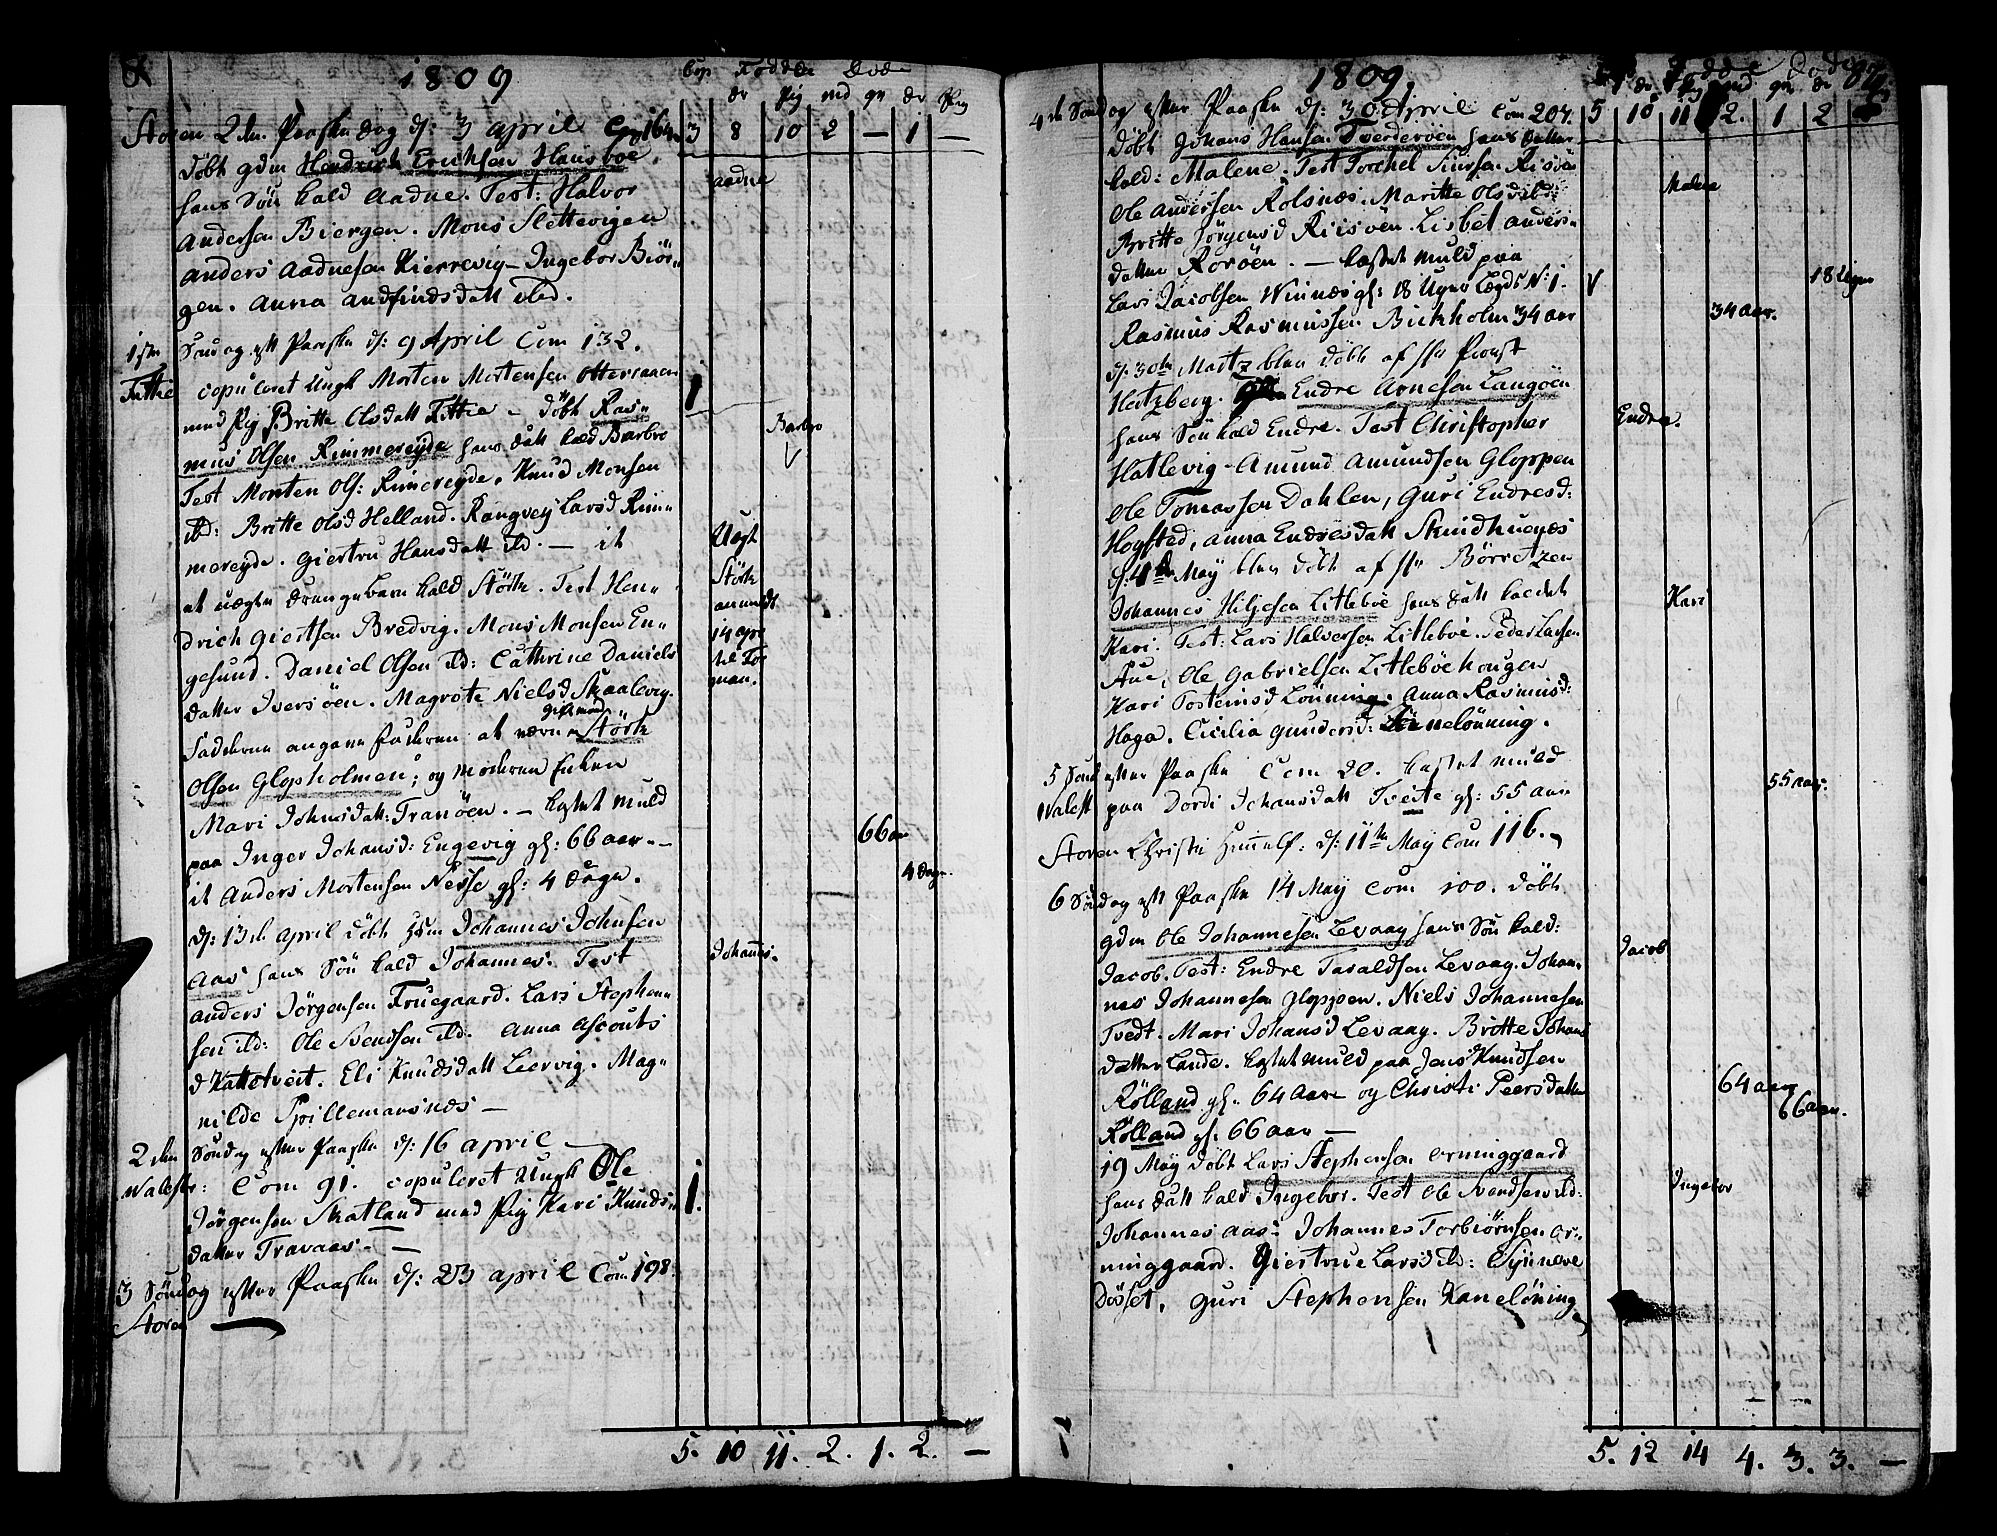 1809
Cop Fødde Døde
dr Pig md qv dr Pig
Storen 2den Paaske dag d: 3 April Com 164 3 8 10 2 — 1 —
døbt gdm Hendrich Erichsen Hausboe
hans Søn kald Aadne. Test: Halvor
Aadne
Andersen Biergen. Mons Slettevigen
Anders Aadnesen Kierrevig - Ingebor Biör-
gen. Anna Andfindsdatt ibd.
1ste Søndag eftr Paaske d: 9 April Com 132.
Fittie copuleret Ungk Morten Mortensen Otteraaen
1
med Pig Britte Olsdatt Fittie - døbt Ras-
Barbro
mus Olsen Rimmereyde hans datt kald Barbro
Test Morten Ols: Rimereyde. Knud Monsen
ibd: Britte Olsd Helland. Rangvey Larsd Rim-
mereyde. Giertru Hansdatt ibd. — it
Uægt
at uægte drengebarn kald Störk. Test Hen-
Störk
anmeldt
drich Giertsen Bredvig. Mons Monsen En-
14 apr
gesund. Daniel Olsen ibd: Cathrine Daniels
til Fog
datter Iversöen. Magrote Nielsd Skaalevig.
gift mand
Faderen angaves at være Störk
Olsen Glopholmen; og moderen Enken
Mari Johnsdatt: Tranöen. — kastet muld
66 aar
paa Inger Johansd: Engevig gl: 66 aar -
4 dage.
it Anders Mortensen Nesse gl: 4 dage.
d: 13de april döbt Hsm Johannes Johnsen
Aas hans Søn kald Johannes. Test
Johannis.
Anders Jörgensen Fruegaard. Lars Stephen-
sen ibd: Ole Svendsen ibd. Anna Ascouts
d Kattetveit. Eli Knudsdatt Leervig. Mag-
nilde Spillemansnæs —
2den Søndag efter Paaske d: 16 april
Walestr: Com 91. copuleret Ungk Ole
Jørgensen Skatland med Pig Kari Knuds-
1.
datter Travaas. —
3 Søndag efter Paaske d: 23 april Com 198.
Storen —
5. 10 11. 2. 1. 2. —
1809.
87
4de Søndag efter Paaske d: 30 April Com 207. 5 10 11 2. 1 2
døbt Johans Hansen Sverderöen hans datter
kald: Malene. Test Torchel Siursen Risöen
Malene
Ole Andersen Rolsnæs. Maritte Olsdtt
Britte Jörgensd Riisöen. Lisbet Anders-
datter Roröen. — kastet muld paa
18 Uger
Lars Jacobsen Winnæs gl: 18 Uger Lægds N: 1.
34 aar.
Rasmus Rasmussen Bickholm 34 aar
d: 30te Martz blev döbt af Hr Provst
Hertzberg. Endre Arnesen Langöen
hans Søn kald Endre. Test Christopher
Endre.
Hatlevig - Amund Amundsen Gloppen
Ole Tomassen Dahlen, Guri Endresd:
Hoysted, Anna Endresdatt Skindhuenæs
d: 4de May blev döbt af Hr Börretzen
Johannes Hiljesen Litleböe hans datt kaldet
Kari
Kari. Test: Lars Halversen Litleböe. Peder Larsen
Aue, Ole Gabrielsen Litleböehougen
Kari Tosteinsd Lönning. Anna Rasmusd:
Haga. Cicilia Gundersd: Kanelönning.
5 Sönd efter Paaske Com 20. kastet muld
Walest paa Dordi Johansdatt Tveite gl: 55 aar
55 aar.
Storen Christi Himmelf: d: 11te May Com 116.
6 Søndag eftr Paaske 14 May Com 100. döbt
gdm Ole Johannesen Levaag hans Søn kald:
Jacob
Jacob. Test: Endre Taraldsen Levaag. Johan-
nes Johannesen Gloppen. Niels Johannesen
Tvedt. Mari Johansd Levaag. Britte Johans
datter Lande. kastet muld paa Jens Knudsen
Rölland gl. 64 Aar og Christi Peersdatter
64 aar
66 aar.
Rölland gl. 66 aar —
19 May döbt Lars Stephensen Orninggaard
hans datt kald Ingebor. Test Ole Svendsen ibd:
Ingebor
Johannes Aas: Johannes Torbiörnsen Or-
ninggaard. Giertrue Larsd ibd: Synneve
Döset, Guri Stephensen Kanelöning
5. 12 14 4. 3. 3. —